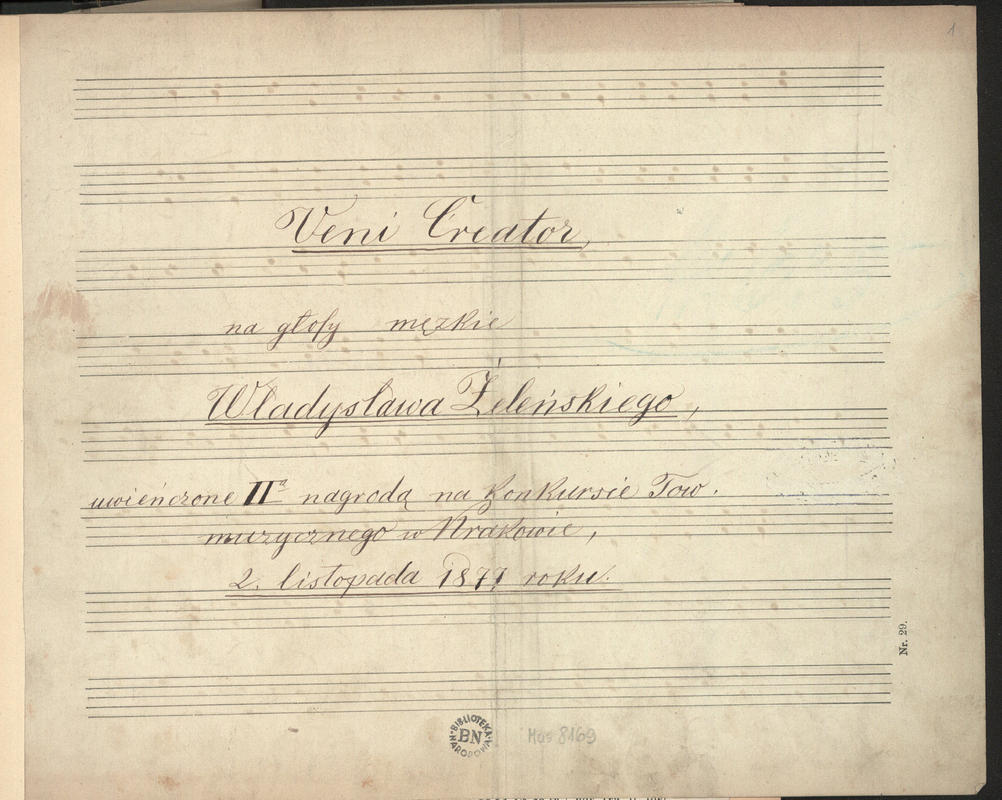 1
Veni Creator,
na głosy męzkie
Władysława Żeleńskiego,
uwieńczone IIą nagrodą na Konkursie Tow.
muzycznego w Krakowie,
2. listopada 1877 roku.
Nr. 29.
BIBLIOTEKA NARODOWA
BN
Mus 8169